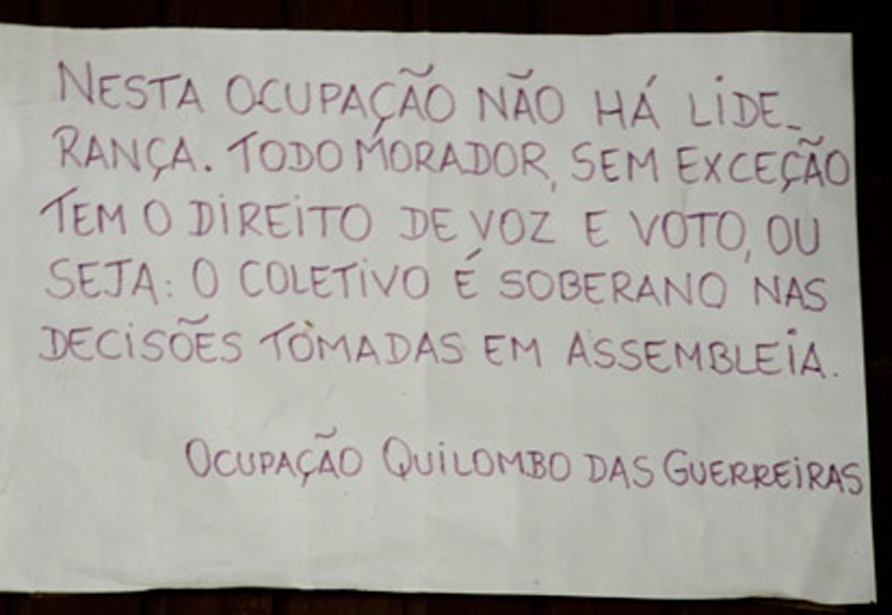 NESTA OCUPAÇÃO NÃO HÁ LIDE_
RANÇA. TODO MORADOR, SEM EXCEÇÃO
TEM O DIREITO DE VOZ E VOTO, OU
SEJA: O COLETIVO É SOBERANO NAS
DECISÕES TOMADAS EM ASSEMBLEIA.
OCUPAÇÃO QUILOMBO DAS GUERREIRAS